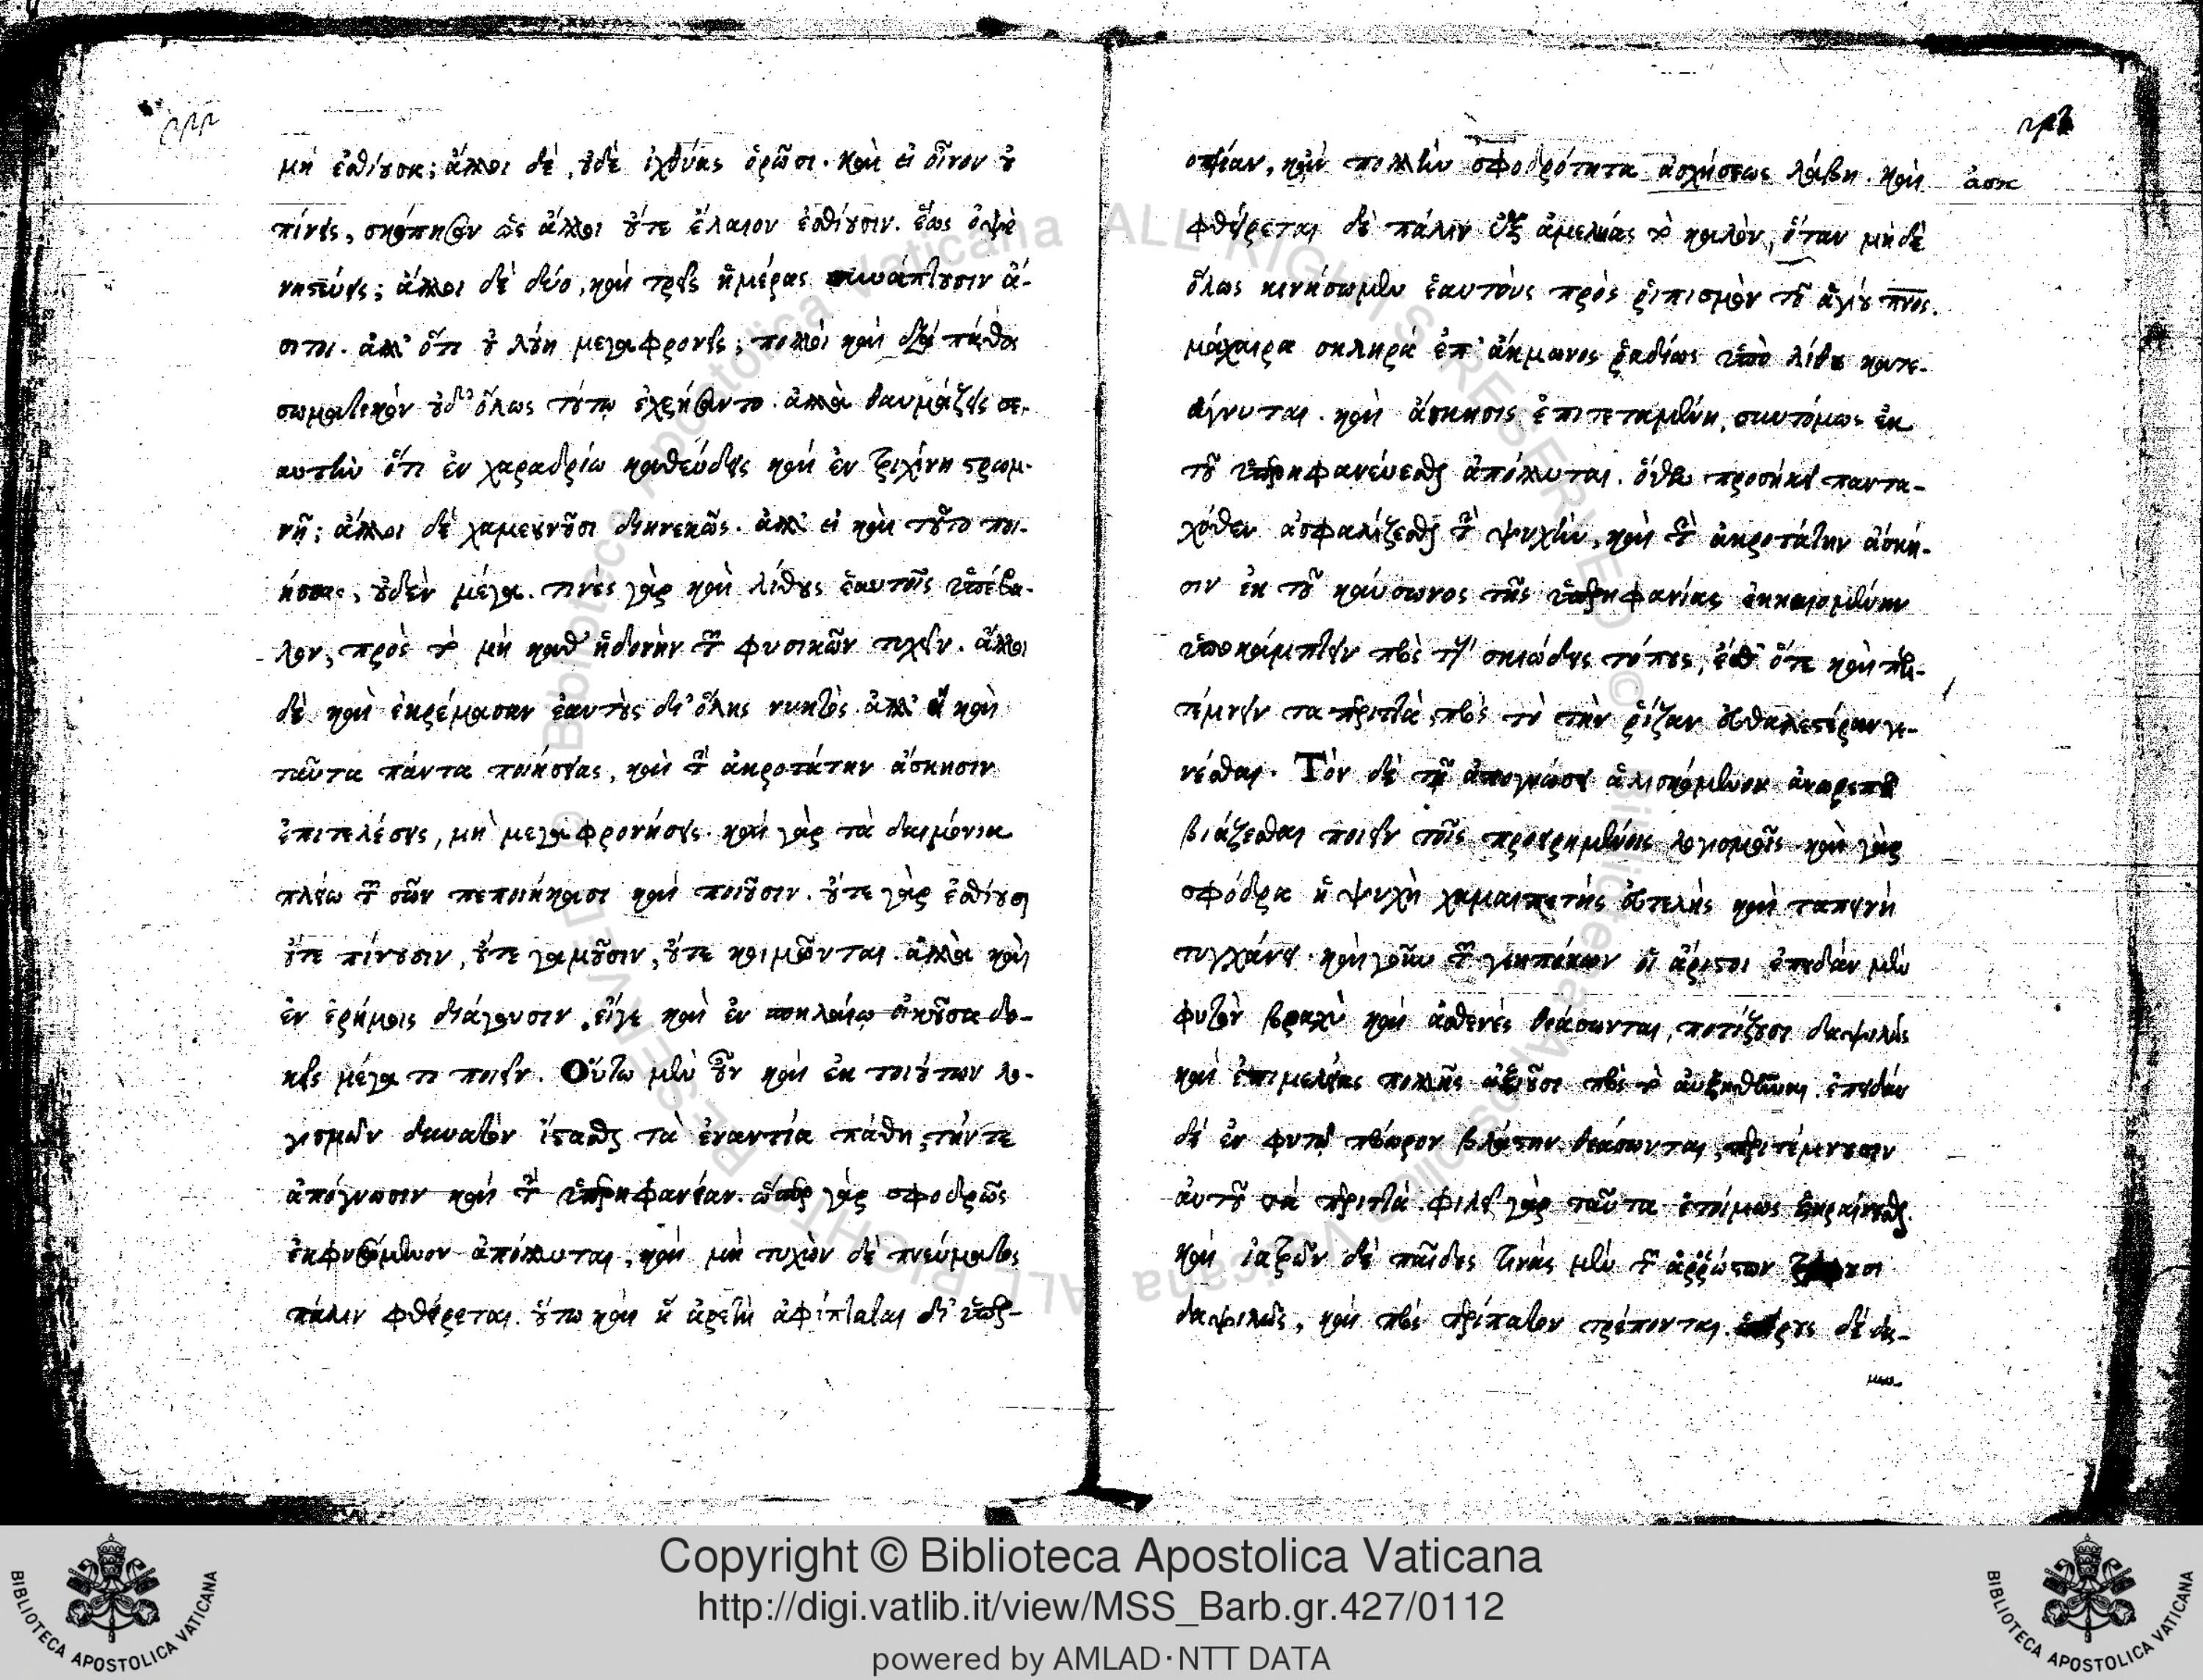 μὴ ἐσθίουσι; ἄλλοι δὲ, οὐδὲ ἰχθύας ὁρῶσι. καὶ εἰ οἶνον οὐ
πίνεις, σκόπησον ὡς ἄλλοι οὔτε ἔλαιον ἐσθίουσιν. ἕως ὀψὲ
νηστεύεις; ἄλλοι δὲ δύο, καὶ τρεῖς ἡμέρας συνάπτουσιν ἄ-
σιτοι. ἀλλ' ὅτι οὐ λούῃ μεγαφρονεῖς; πολλοὶ καὶ διὰ πάθος
σωματικὸν οὐδ' ὅλως τούτῳ ἐχρήσαντο. ἀλλὰ θαυμάζεις σε-
αυτὴν ὅτι ἐν χαραδρίῳ καθεύδεις καὶ ἐν τριχίνῃ στρωμ-
νῇ; ἄλλοι δὲ χαμευνοῦσι διηνεκῶς. ἀλλ' εἰ καὶ τοῦτο ποι-
ήσεις, οὐδὲν μέγα. τινὲς γὰρ καὶ λίθους ἑαυτοῖς ὑπέβα-
λον, πρὸς τὸ μὴ καθ' ἡδονὴν τῶν φυσικῶν τυχεῖν. ἄλλοι
δὲ καὶ ἐκρέμασαν ἑαυτοὺς δι' ὅλης νυκτός. ἀλλ' εἰ καὶ
ταῦτα πάντα ποιήσειας, καὶ τὴν ἀκροτάτην ἄσκησιν
ἐπιτελέσεις, μὴ μεγαφρονήσεις. καὶ γὰρ τὰ δαιμόνια
πλείω τῶν σῶν πεποιήκασι καὶ ποιοῦσιν. οὔτε γὰρ ἐσθίουσι
οὔτε πίνουσιν, οὔτε γαμοῦσιν, οὔτε κοιμῶνται. ἀλλὰ καὶ
ἐν ἐρήμοις διάγουσιν, εἴγε καὶ ἐν σπηλαίῳ οἰκοῦσα δο-
κεῖς μέγα τι ποιεῖν. Οὕτω μὲν οὖν καὶ ἐκ τοιούτων λο-
γισμῶν δυνατὸν ἰᾶσθαι τὰ ἐναντία πάθη, τήν τε
ἀπόγνωσιν καὶ τὴν ὑπερηφανείαν. ὥσπερ γὰρ σφοδρῶς
ἐκφυσόμενον ἀπόλλυται, καὶ μὴ τυχὸν δὲ πνεύματος
πάλιν φθείρεται. οὕτω καὶ ἡ ἀρετὴ ἀφίπταται δι' ὑπερ-
οψίαν, κἂν πολλὴν σφοδρότητα ἀσκήσεως λάβῃ. καὶ
ἀσκ
φθείρεται δὲ πάλιν ἐξ ἀμελείας τὸ καλὸν, ὅταν μηδὲ
ὅλως κινήσωμεν ἑαυτοὺς πρὸς ῥιπισμὸν τοῦ ἁγίου πνος.
μάχαιρα σκληρὰ ἐπ' ἄκμωνος ῥαδίως ὑπὸ λίθου κατε-
άγνυται. καὶ ἄσκησις ἐπιτεταμένη, συντόμως ἐκ
τοῦ ὑπερηφανεύεσθαι ἀπόλλυται. ὅθεν προσήκει παντα-
χόθεν ἀσφαλίζεσθαι τὴν ψυχὴν, καὶ τὴν ἀκροτάτην ἄσκη-
σιν ἐκ τοῦ καύσωνος τῆς ὑπερηφανίας ἐκκαιομένην
ὑποκάμπτειν πρὸς τοὺς σκιώδεις τόπους, ἔσθ' ὅτε καὶ περι-
τέμνειν τὰ περιττὰ, πρὸς τὸ τὴν ῥίζαν εὐθαλεστέραν γε-
νέσθαι. Τὸν δὲ τῇ ἀπογνώσει ἁλισκόμενον
βιάζεσθαι ποιεῖν τοῖς προειρημένοις λογισμοῖς. καὶ γὰρ
σφόδρα ἡ ψυχὴ χαμαιπετὴς εὐτελὴς καὶ ταπεινὴ
τυγχάνει. καὶ γοῦν τῶν γηπόνων οἱ ἄριστοι ἐπειδὰν μὲν
φυτὸν βραχὺ καὶ ἀσθενὲς θεάσωνται, ποτίζουσι δαψιλῶς
καὶ ἐπιμελείας πολλῆς ἀξιοῦσι πρὸς τὸ αὐξηθῆναι. ἐπειδὰν
δὲ ἐν φυτῷ πρόωρον βλάστην θεάσωνται, περιτέμνουσιν
αὐτοῦ τὰ περιττά. φιλεῖ γὰρ ταῦτα ἑτοίμως ξηραίνεσθαι.
καὶ ἰατρῶν δὲ παῖδες τινὰς μὲν τῶν ἀρρώστων τρέφουσι
δαψιλῶς, καὶ πρὸς περίπατον τρέπονται. ἑτέρους δὲ δε-